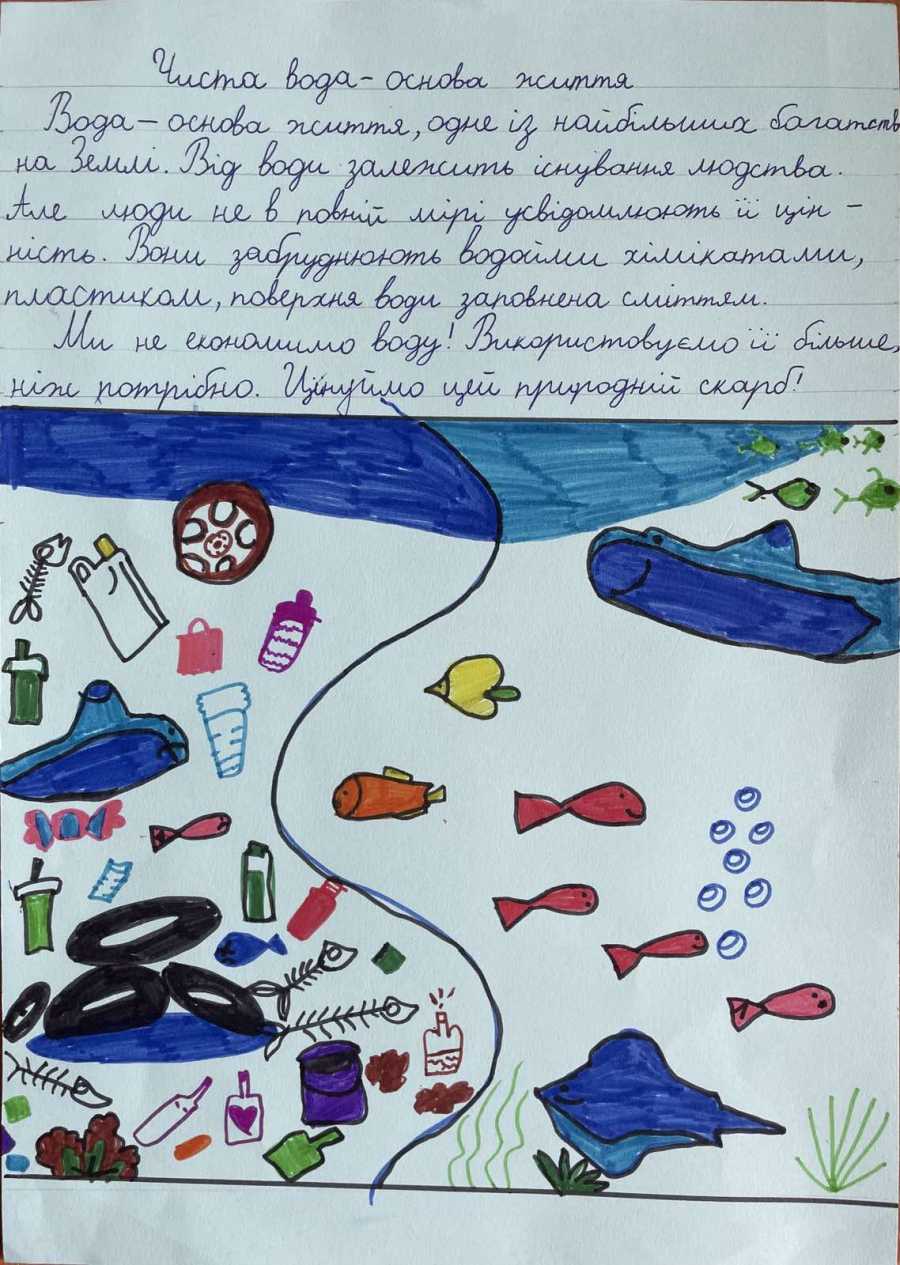 Чиста вода - основа життя
Вода - основа життя, одне із найбільших багатств
на Землі. Від води залежить існування людства.
Але люди не в повній мірі усвідомлюють її цін -
ність. Вони забруднюють водойми хімікатами,
пластиком, поверхня води заповнена сміттям.
Ми не економимо воду! Використовуємо її більше,
ніж потрібно. Цінуймо цей природній скарб!